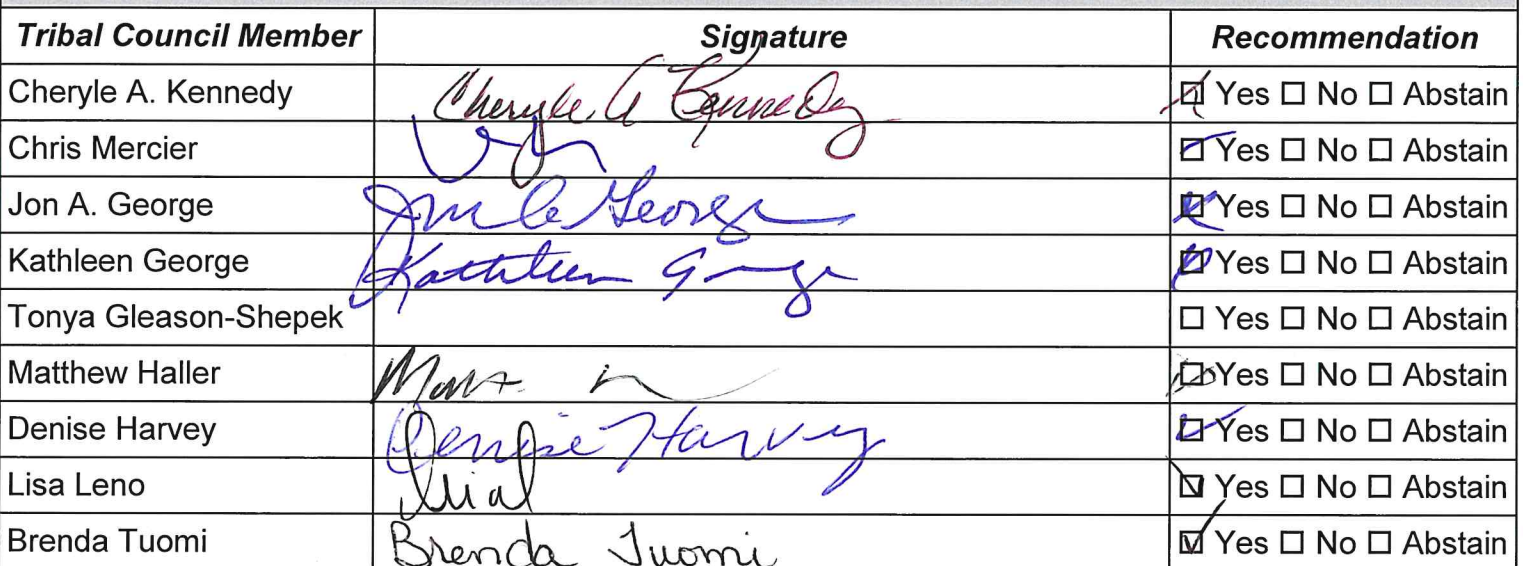 Tribal Council Member Signature Recommendation
Cheryle A. Kennedy Cheryle A Kennedy ☑ Yes ☐ No ☐ Abstain
Chris Mercier ☑ Yes ☐ No ☐ Abstain
Jon A. George Jon A George ☑ Yes ☐ No ☐ Abstain
Kathleen George Kathleen George ☑ Yes ☐ No ☐ Abstain
Tonya Gleason-Shepek ☐ Yes ☐ No ☐ Abstain
Matthew Haller ☑ Yes ☐ No ☐ Abstain
Denise Harvey Denise Harvey ☑ Yes ☐ No ☐ Abstain
Lisa Leno ☑ Yes ☐ No ☐ Abstain
Brenda Tuomi Brenda Tuomi ☑ Yes ☐ No ☐ Abstain